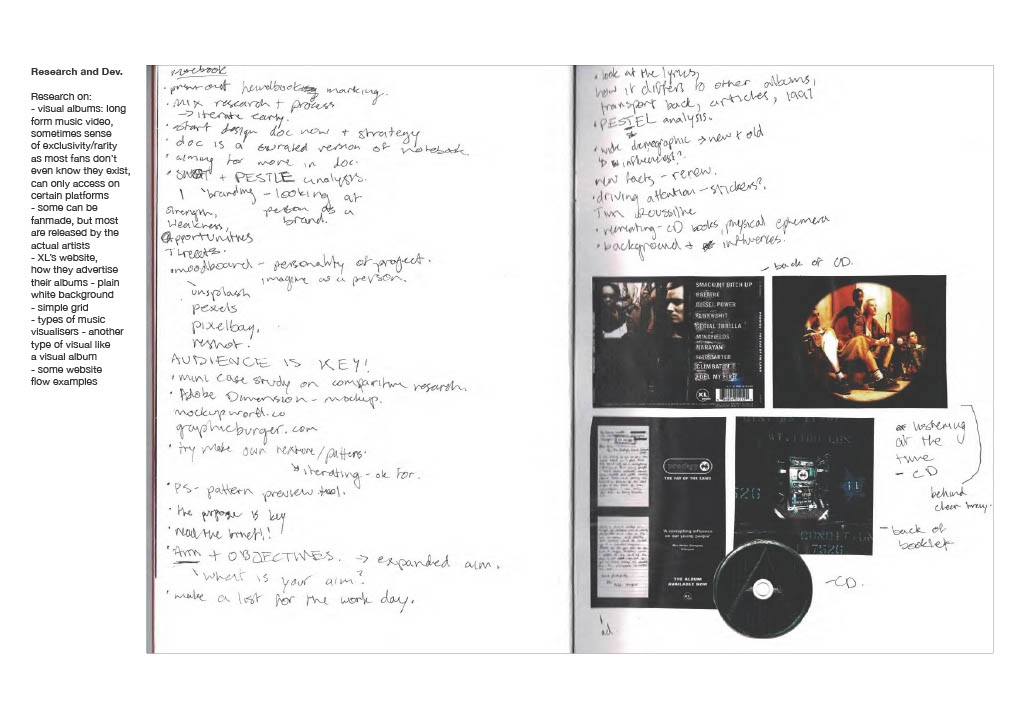 Research and Dev.
Research on:
- visual albums: long
form music video,
sometimes sense
of exclusivity/rarity
as most fans don't
even know they exist,
can only access on
certain platforms
- some can be
fanmade, but most
are released by the
actual artists
- XL's website,
how they advertise
their albums - plain
white background
- simple grid
- types of music
visualisers - another
type of visual like
a visual album
- some website
flow examples
notebook
• print out handbook marking.
• mix research + process
→ iterate early.
• start design doc now + strategy
• doc is a curated version of notebook
• aiming for more in doc.
• SWOT + PESTLE analysis.
branding - looking at
person as a
brand.
Strength,
Weakness,
Opportunities
Threats.
• moodboard - personality of project.
imagine as a person.
unsplash
pexels
pixelbay,
reshot.
AUDIENCE IS KEY!
• mini case study on comparitive research.
• Adobe Dimension - mockup.
mockupworld.co
graphicburger.com
• try make own texture/patterns.
↳ iterating - ok for.
• PS - pattern preview tool.
• the purpose is key
• read the brief!!
• Aim + OBJECTIVES. → expanded aim.
\ what is your aim?
• make a list for the work day.
• look at the lyrics,
how it differs to other albums,
transport back, articles, 1997
• PESTEL analysis.
• wide demographic → new + old
↳ influences?.
new facts - renew.
• driving attention - stickers?.
• rementing - CD books, physical ephemera
• background + influences.
- back of CD.
SMACK MY BITCH UP
BREATHE
DIESEL POWER
FUNKY SHIT
SERIAL THRILLA
MINDFIELDS
NARAYAN
FIRESTARTER
CLIMBATIZE
FUEL MY FIRE
XL
listening
at the
time
- CD
behind
clear tray.
prodigy
THE FAT OF THE LAND
'A corrupting influence
on our young people'
THE ALBUM
AVAILABLE NOW
XL
- back of
booklet
- CD.
ad.